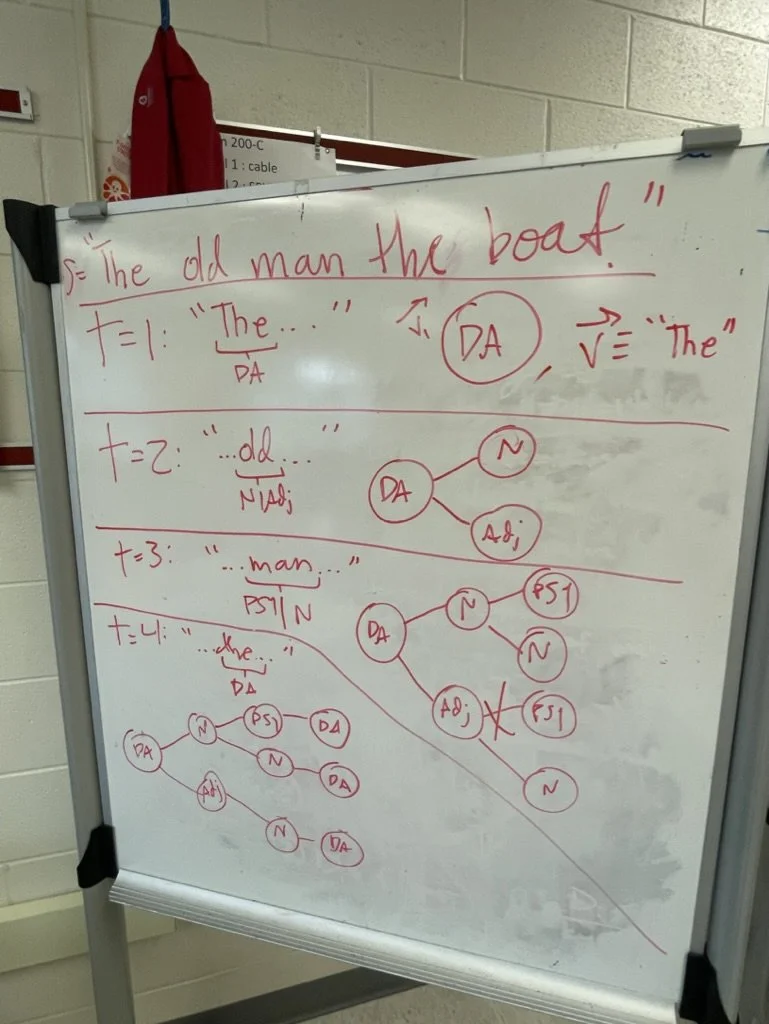 200-C
1 : cable
S= "The old man the boat."
t=1: "The..."
DA
DA , V ≡ "The"
t=2: "...old..."
N|Adj
DA
N
Adj
t=3: "...man..."
PS1| N
DA
N
PS1
N
Adj
PS1
N
t=4: "...the..."
DA
DA
N
PS1
DA
N
DA
Adj
N
DA